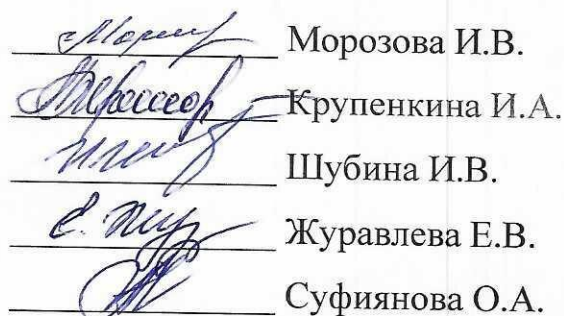 Морозова И.В.
Крупенкина И.А.
Шубина И.В.
Журавлева Е.В.
Суфиянова О.А.